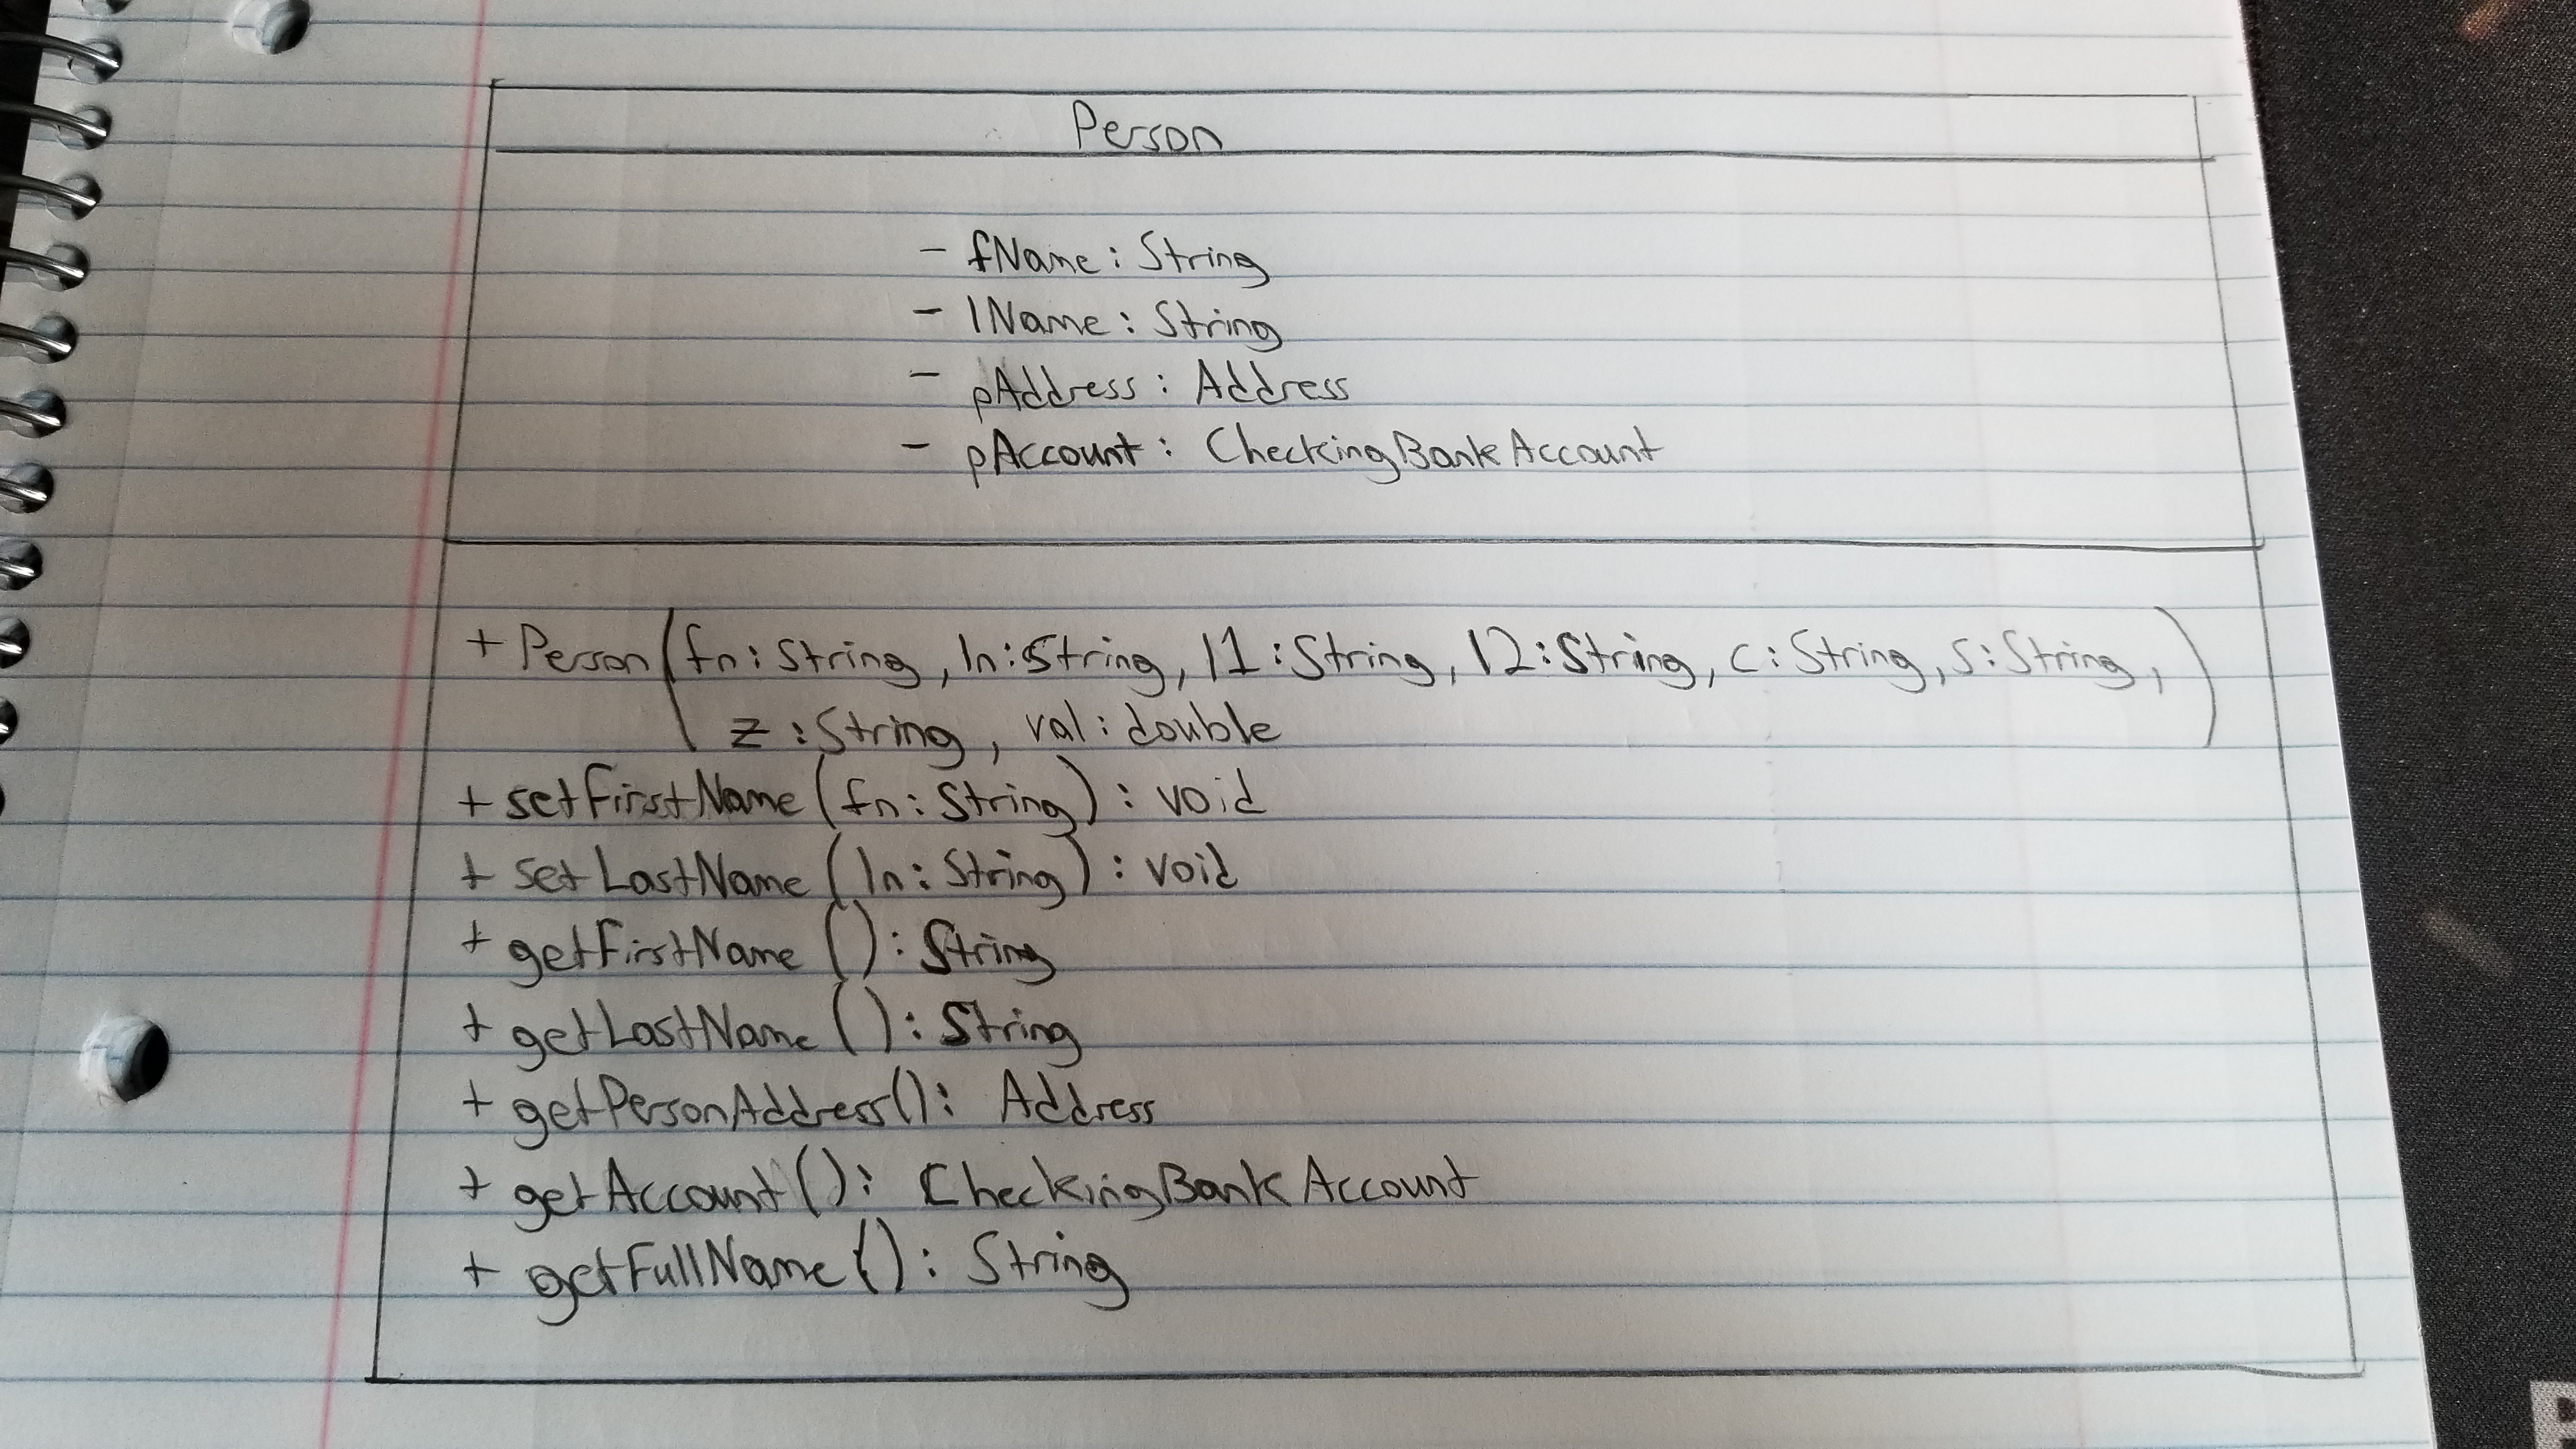 Person
- fName : String
- lName : String
- pAddress : Address
- pAccount : CheckingBankAccount
+ Person(fn : String, ln : String, l1 : String, l2 : String, c : String, s : String,
z : String, val : double)
+ setFirstName (fn : String) : void
+ setLastName (ln : String) : void
+ getFirstName () : String
+ getLastName () : String
+ getPersonAddress() : Address
+ getAccount() : CheckingBankAccount
+ getFullName() : String